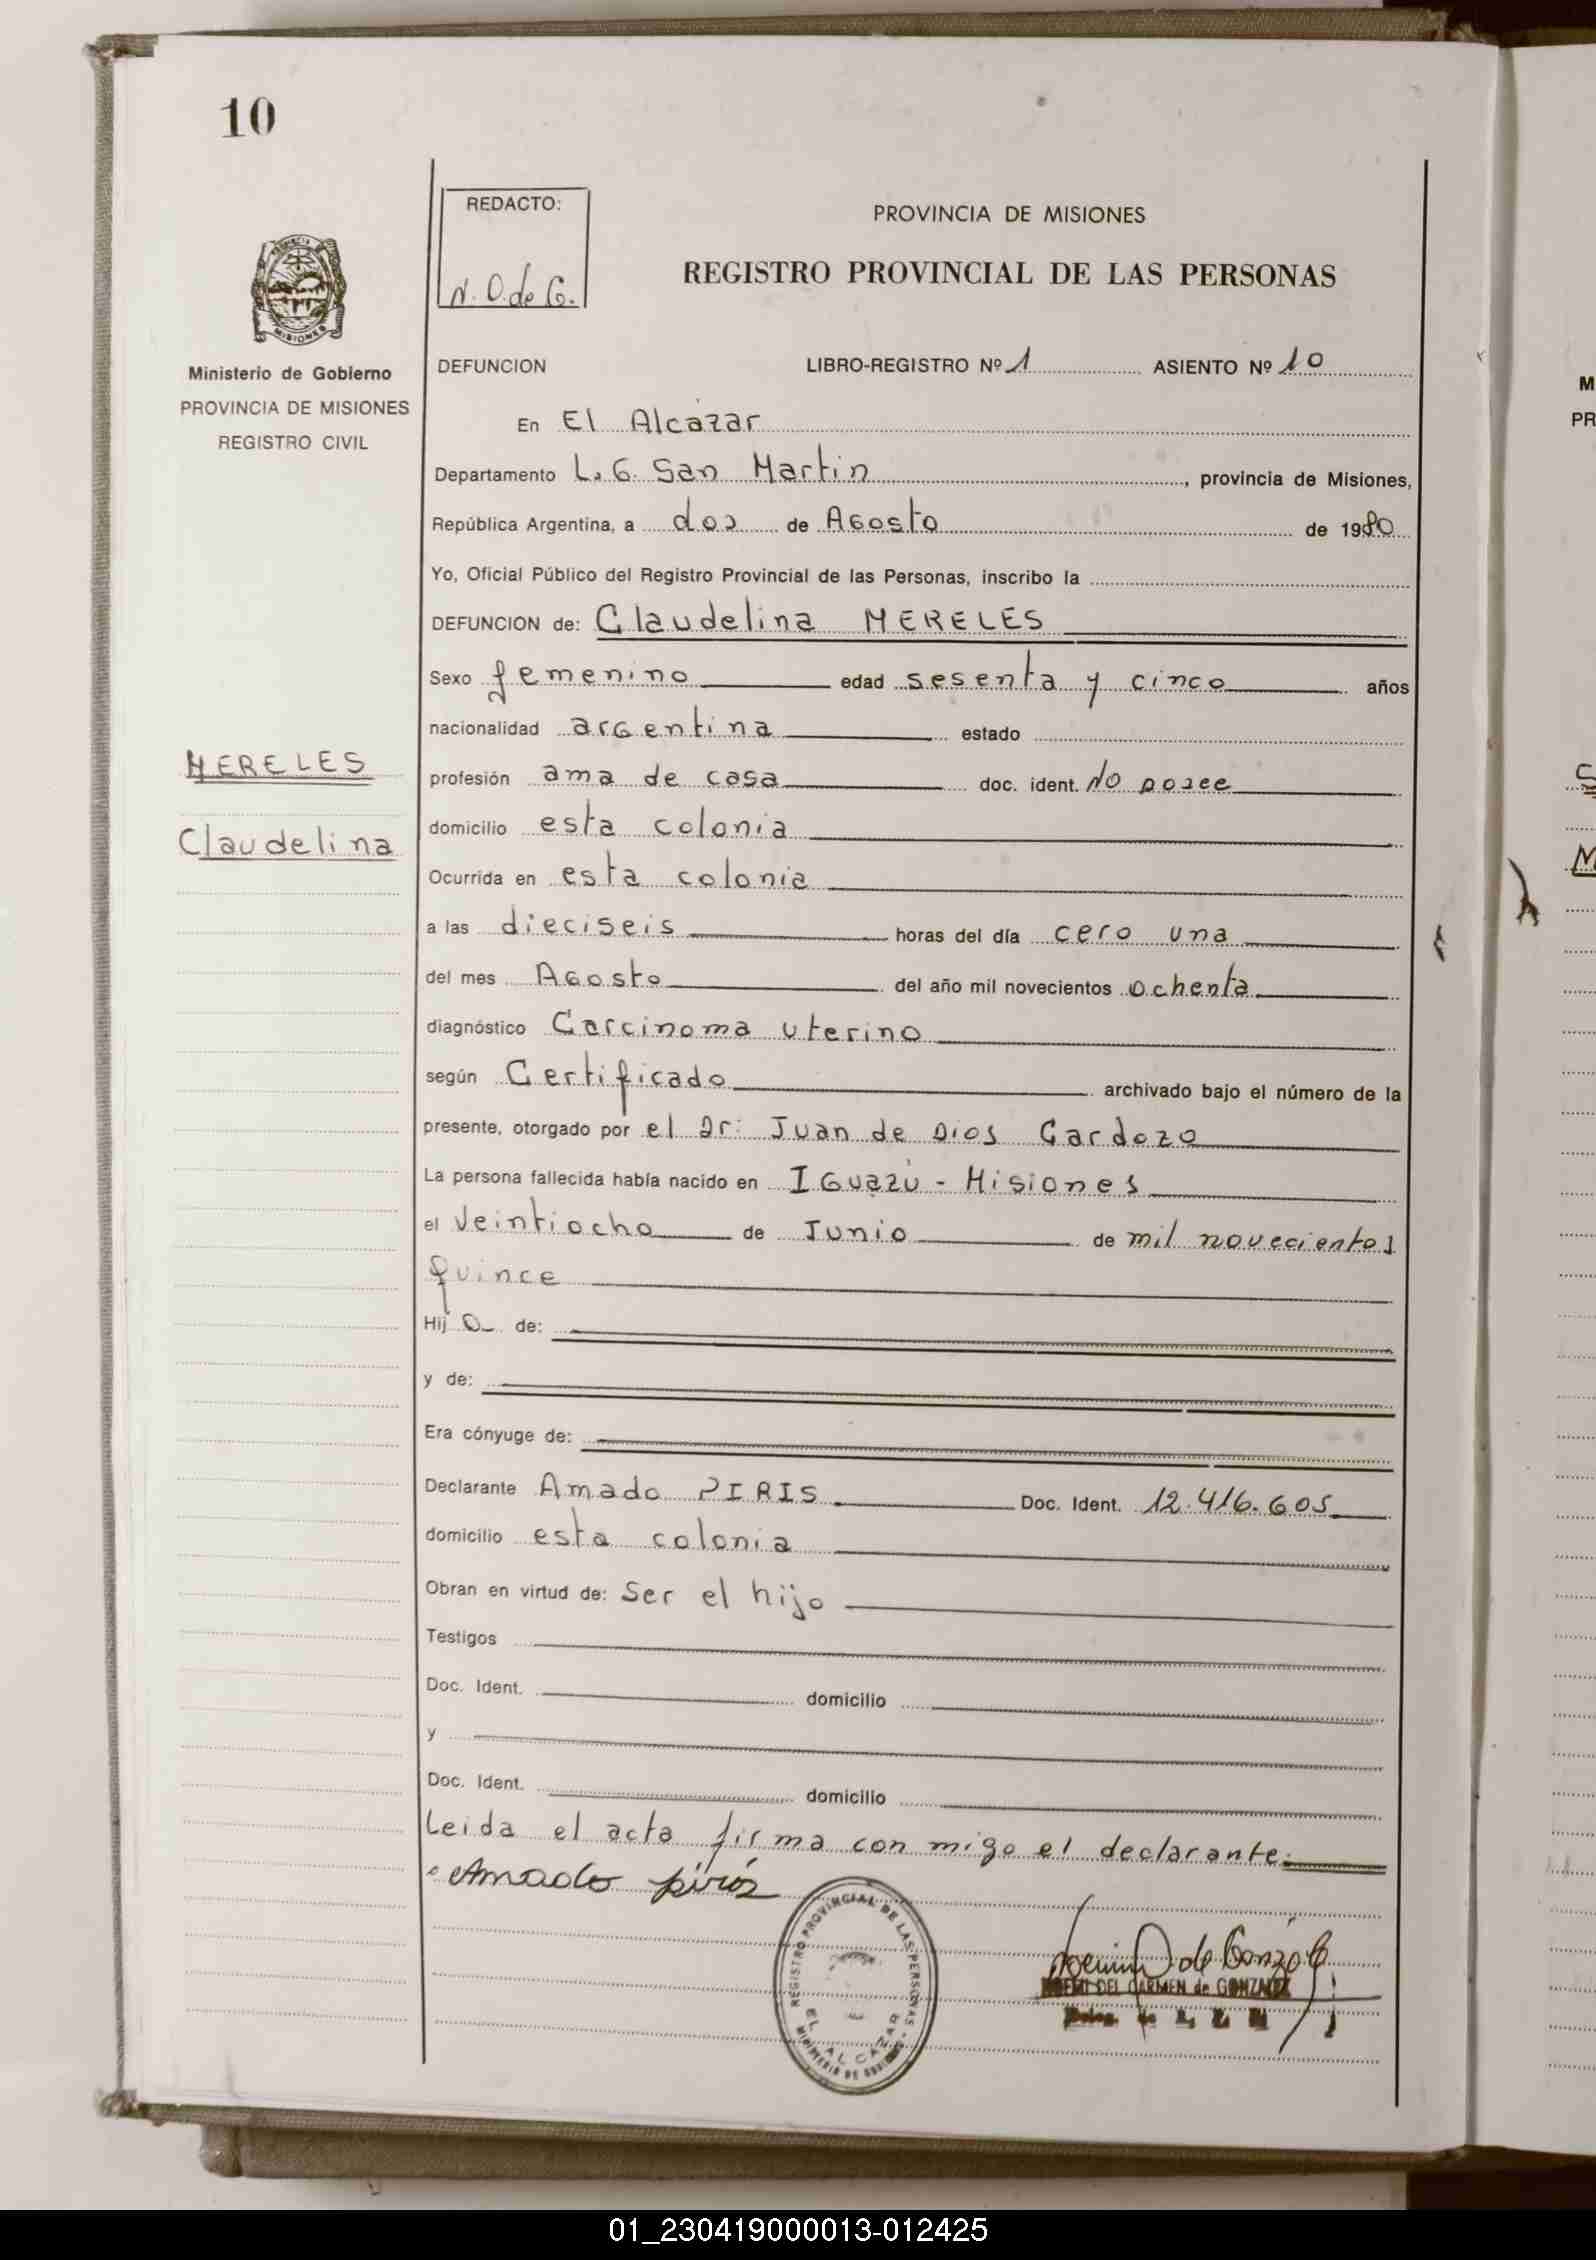 10
REDACTO:
N. O. de G.
PROVINCIA DE MISIONES
REGISTRO PROVINCIAL DE LAS PERSONAS
MISIONES
Ministerio de Gobierno
PROVINCIA DE MISIONES
REGISTRO CIVIL
DEFUNCION LIBRO-REGISTRO Nº 1 ASIENTO Nº 10
En El Alcázar
Departamento L. G. San Martin, provincia de Misiones,
República Argentina, a dos de Agosto de 1980
Yo, Oficial Público del Registro Provincial de las Personas, inscribo la
DEFUNCION de: Claudelina MERELES
Sexo femenino edad sesenta y cinco años
nacionalidad argentina estado
MERELES
Claudelina
profesión ama de casa doc. ident. No posee
domicilio esta colonia
Ocurrida en esta colonia
a las dieciseis horas del día cero una
del mes Agosto del año mil novecientos ochenta
diagnóstico Carcinoma uterino
según Certificado archivado bajo el número de la
presente, otorgado por el Dr: Juan de Dios Cardozo
La persona fallecida había nacido en Iguazú - Misiones
el veintiocho de Junio de mil novecientos
quince
Hija de:
y de:
Era cónyuge de:
Declarante Amado PIRIS Doc. Ident. 12.416.605
domicilio esta colonia
Obran en virtud de: Ser el hijo
Testigos
Doc. Ident. domicilio
y
Doc. Ident. domicilio
Leida el acta firma con migo el declarante.
Amado piris
REGISTRO PROVINCIAL DE LAS PERSONAS
EL ALCAZAR
MINISTERIO DE GOBIERNO
DEL CARMEN de GONZALEZ
M
PR
01_230419000013-012425